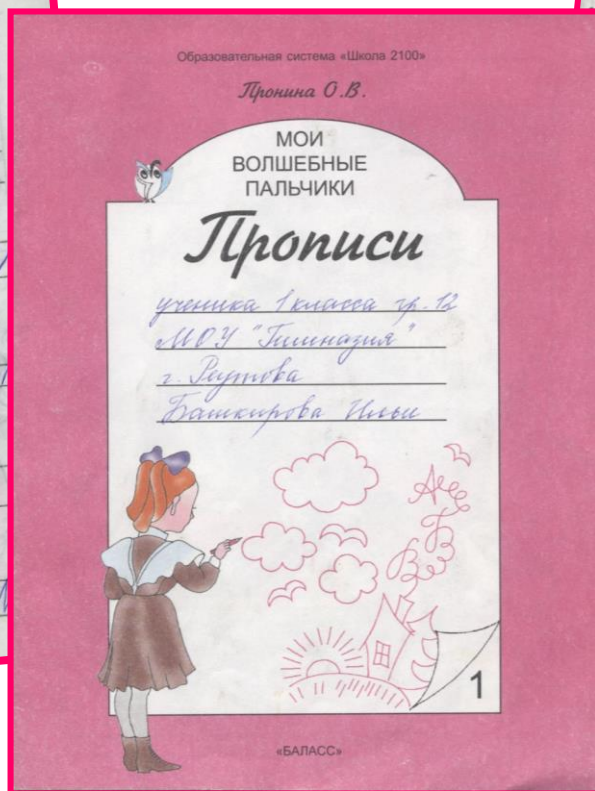 Образовательная система «Школа 2100»
Пронина О.В.
МОИ
ВОЛШЕБНЫЕ
ПАЛЬЧИКИ
Прописи
ученика 1 класса гр. 12
МОУ "Гимназия"
г. Реутова
Башкирова Ильи
А
Б
В
1
«БАЛАСС»